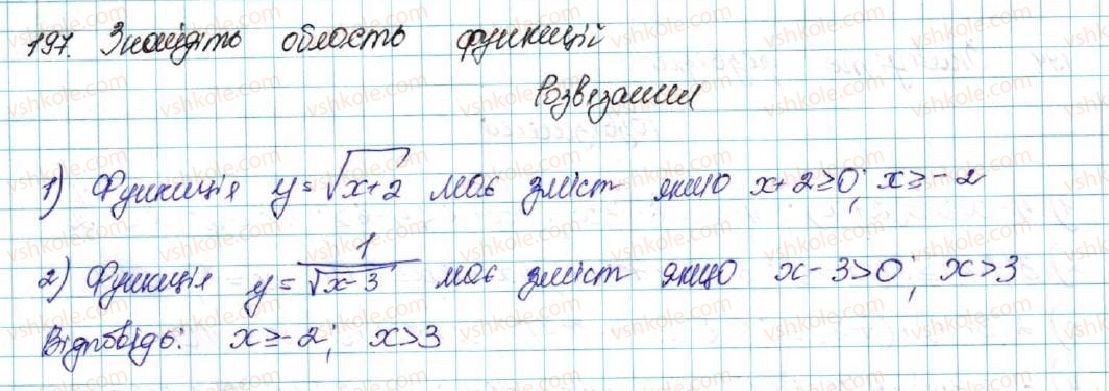 197. Знайдіть область функцій
Розвязання
1) Функція y = √x+2 має зміст якщо x+2≥0; x≥-2
2) Функція y = 1/√x-3 має зміст якщо x-3>0; x>3
Відповідь: x≥-2; x>3